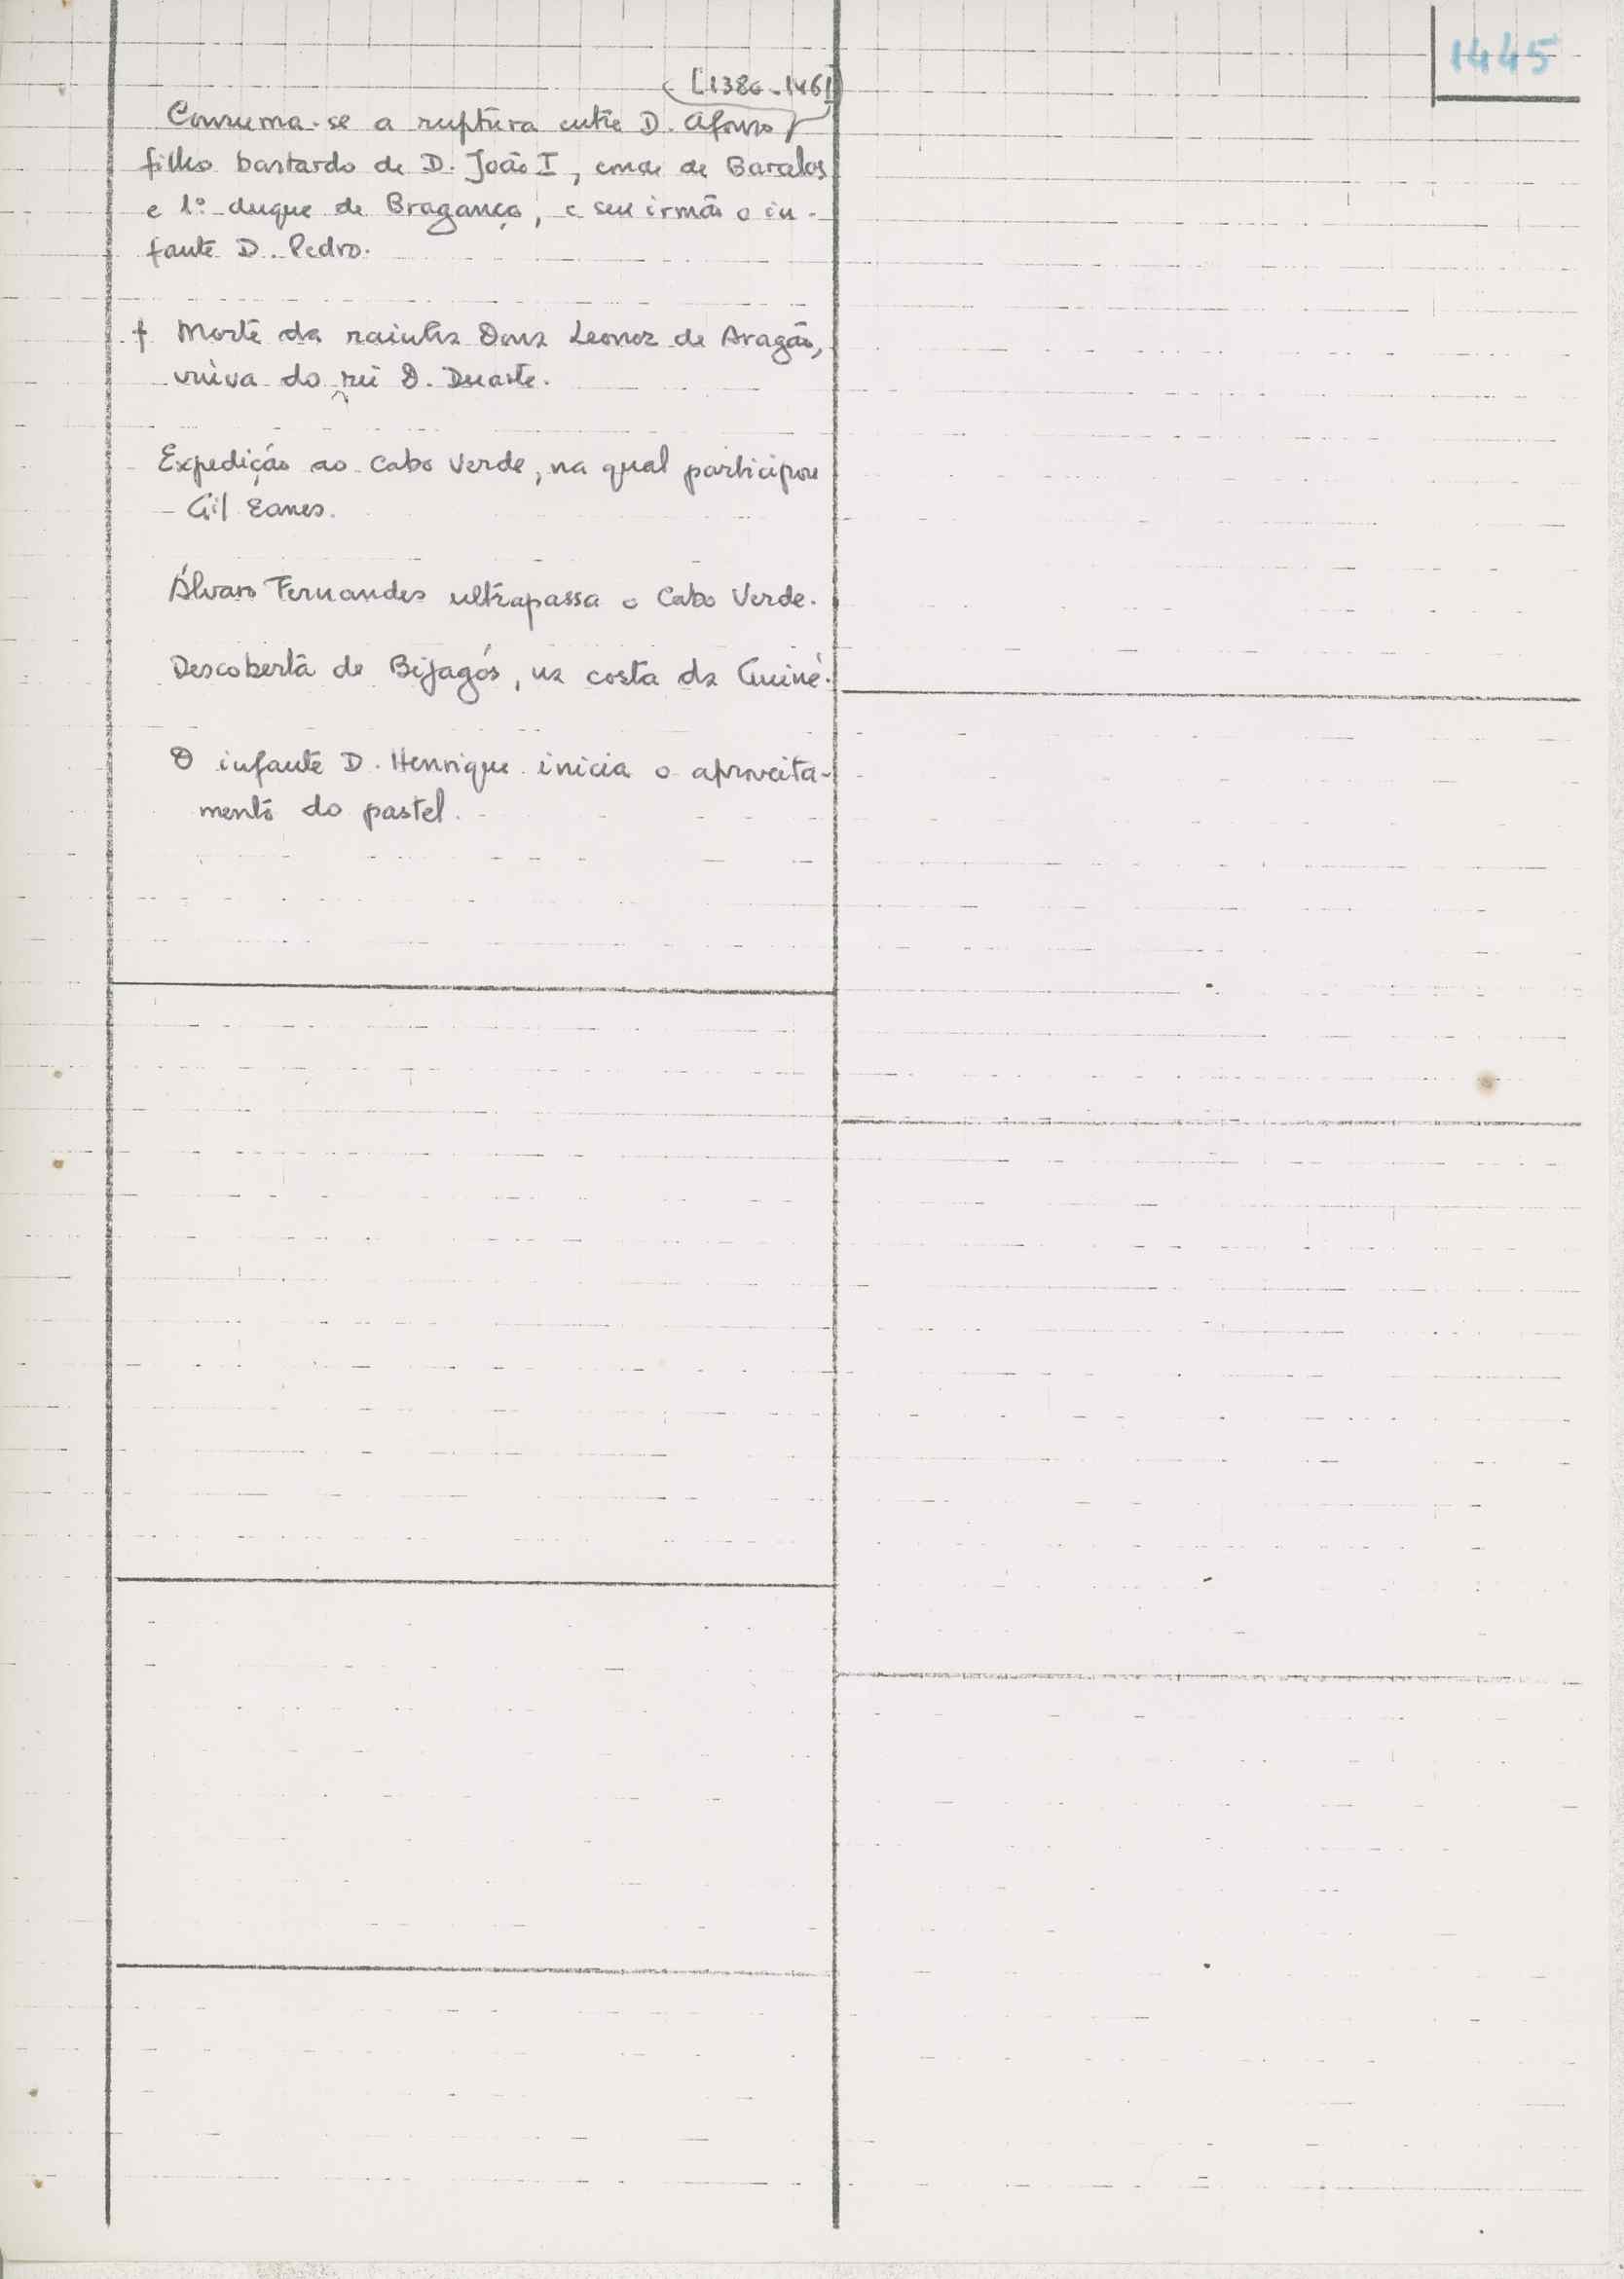 1445
[1380-1461]
Consuma-se a ruptura entre D. Afonso
filho bastardo de D. João I, conde de Barcelos
e 1º duque de Bragança, e seu irmão o in-
fante D. Pedro.
† Morte da rainha Dona Leonor de Aragão,
viúva do rei D. Duarte.
Expedição ao Cabo Verde, na qual participou
- Gil Eanes.
Álvaro Fernandes ultrapassa o Cabo Verde.
Descoberta de Bijagós, na costa da Guiné.
O infante D. Henrique inicia o aproveita-
mento do pastel.